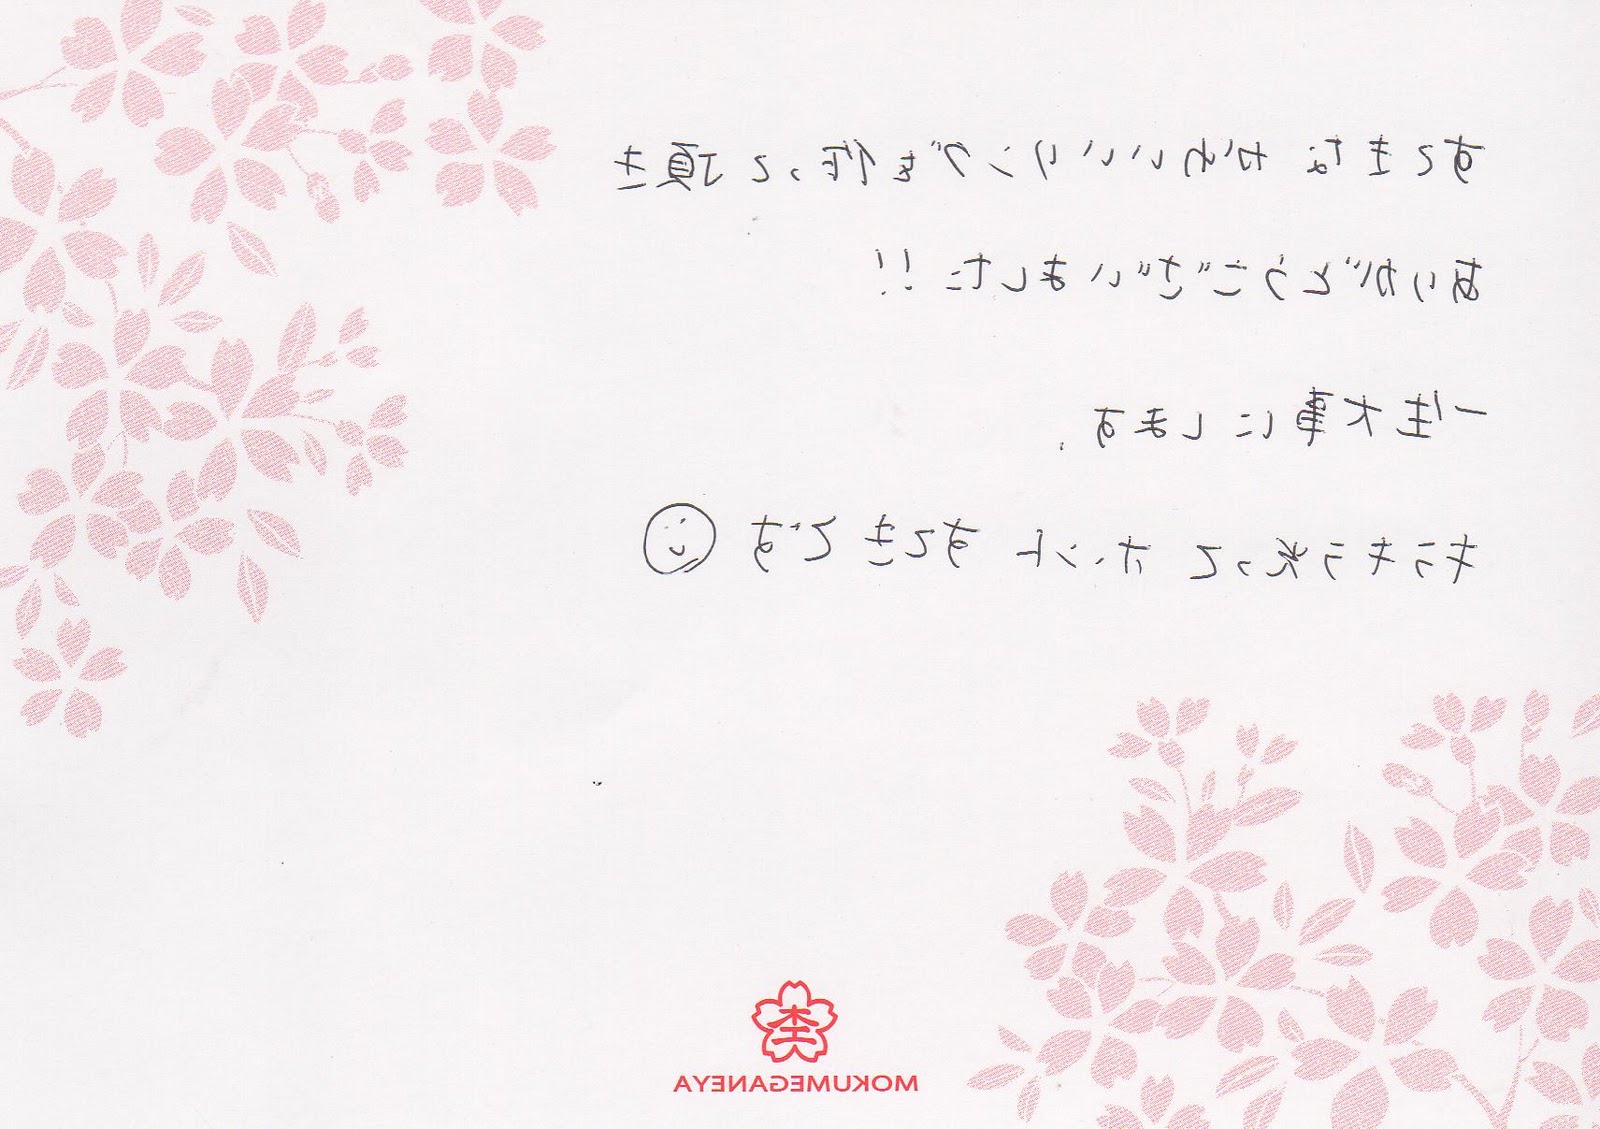 すてきな かわいいリングを作って頂き
ありがとうございました!!
一生大事にします.
キラキラ光って ホント すてきです
杢
MOKUMEGANEYA